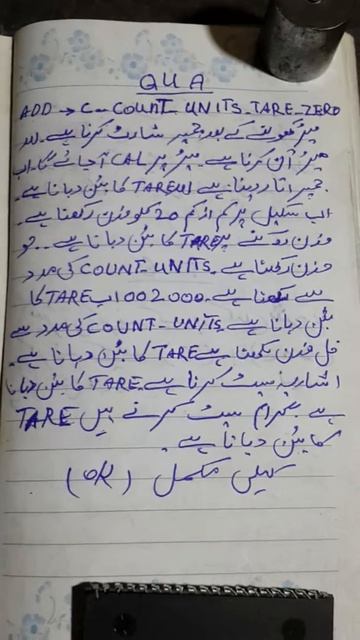 QUA
ADD → C-COUNT-UNITS-TARE-ZERO
میٹر کھولنے کے بعد جمپر شارٹ کرنا ہے۔ اور
میٹر آن کرنا ہے۔ میٹر پر CAL آجائے گا۔ اب
جمپر اتار دینا ہے اور TARE کا بٹن دبانا ہے۔
اب سکیل پر کم از کم 20 کلو وزن رکھنا ہے۔
وزن رکھنے پر TARE کا بٹن دبانا ہے۔۔ جو
وزن رکھنا ہے۔ COUNT-UNITS کی مدد
سے لکھنا ہے۔ 002.000 اب TARE کا
بٹن دبانا ہے۔ COUNT-UNITS کی مدد سے
فل وزن لکھنا ہے TARE کا بٹن دبانا ہے۔
اشاریہ سیٹ کرنا ہے TARE کا بٹن دبانا
ہے گرام سیٹ کرنے ہیں TARE
کا بٹن دبانا ہے۔
مکمل (OK)